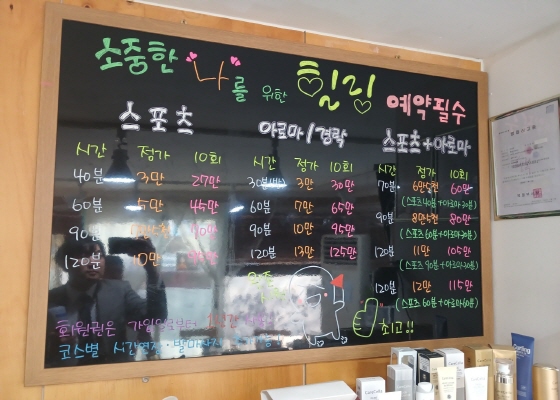 소중한 "나"를 위한 힐링
예약필수
스포츠
시간 정가 10회
40분 3만 27만
60분 5만 45만
90분
120분
아로마/경락
시간 정가 10회
30분 3만 30만
60분 7만 65만
90분 10만 95만
120분 13만 125만
스포츠+아로마
시간 정가 10회
70분 6만5천 60만
(스포츠40분+아로마30분)
90분 8만5천 80만
(스포츠60분+아로마30분)
120분 11만 105만
(스포츠 90분+아로마30분)
120분 12만 115만
(스포츠 60분+아로마60분)
최고!!
회원권은 가입일로부터
코스별 시간연장